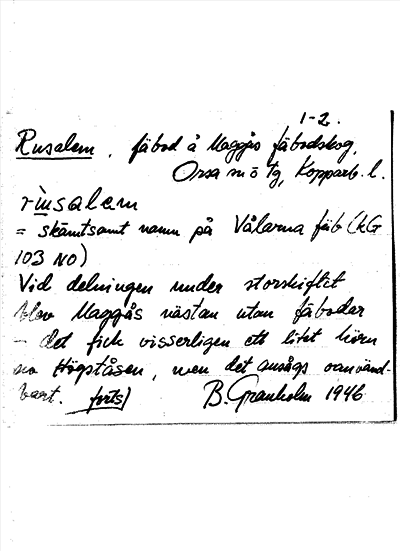 1-2.
Rusalem, fäbod å Maggås fäbodskog,
Orsa sn o tg, Kopparb. l.
rusalem
= skämtsamt namn på Vålarna fäb (kG
103 NO)
Vid delningen under storskiftet
blev Maggås nästan utan fäbodar
– det fick visserligen ett litet hörn
no Högståsen, men det ansågs oanvänd-
bart. forts)
B. Granholm 1946